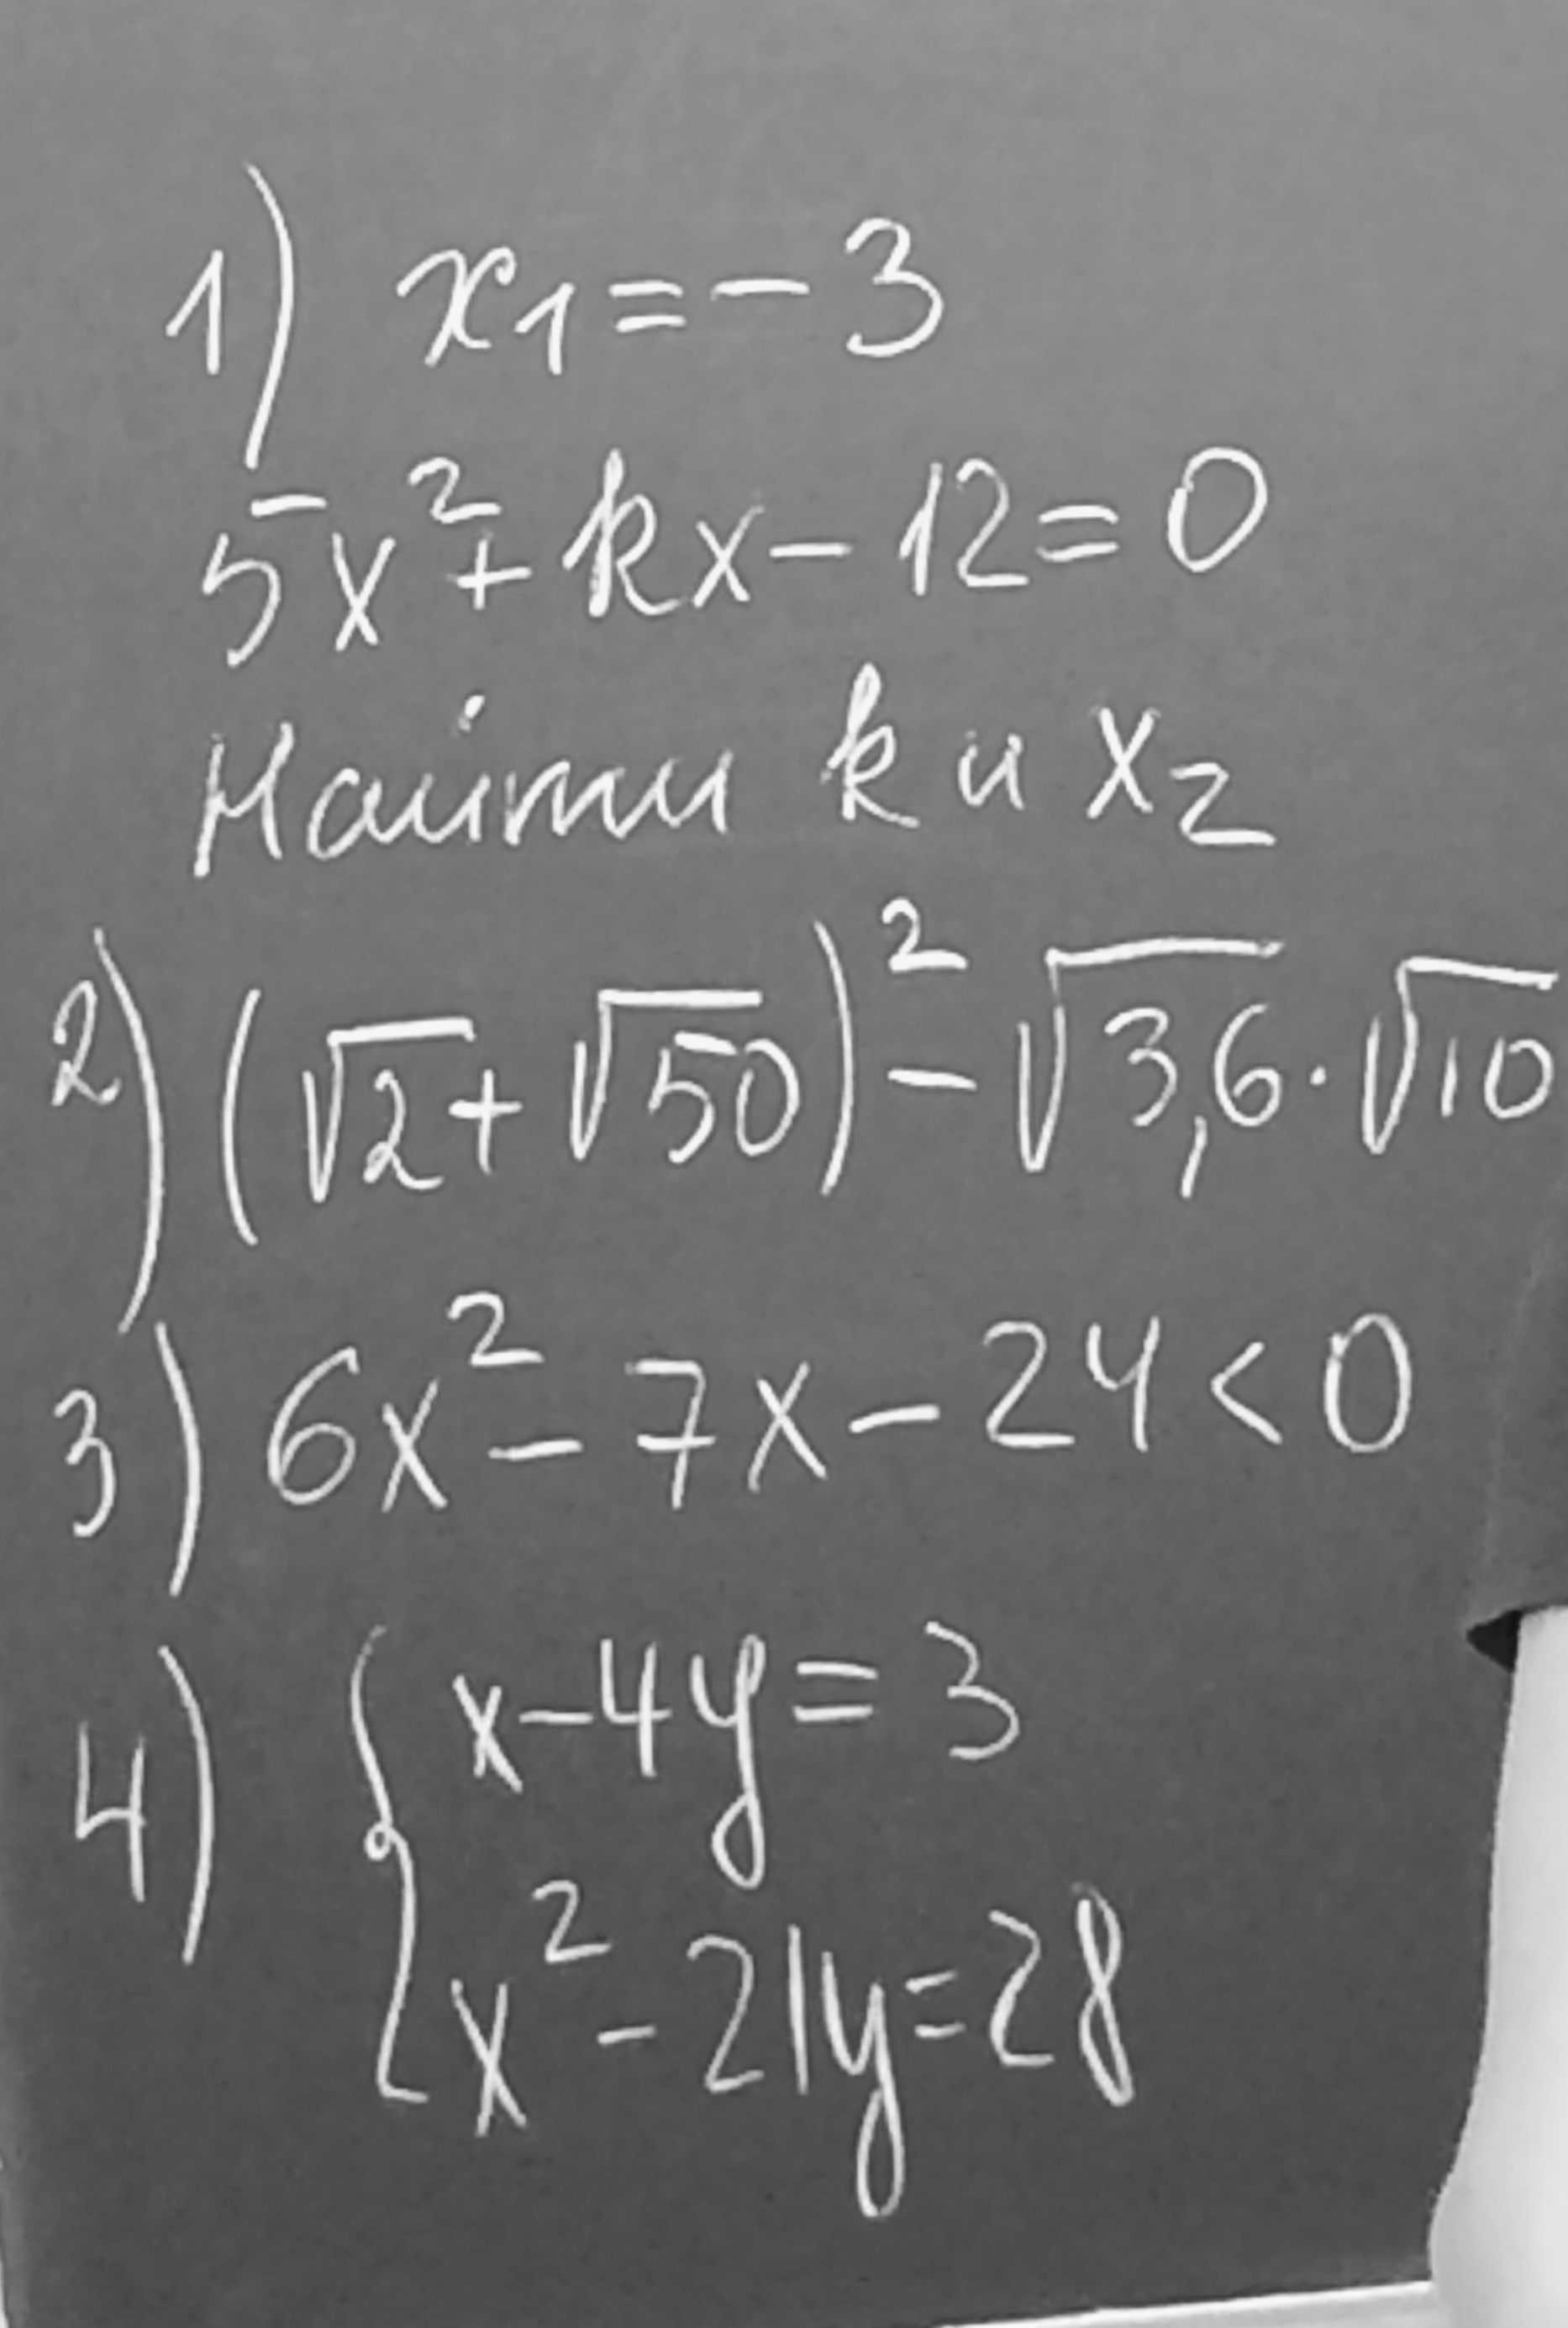 1) x₁ = -3
5x² + kx - 12 = 0
Найти k и x₂
2) (√2 + √50)² - √3,6 · √10
3) 6x² - 7x - 24 < 0
4) { x - 4y = 3
x² - 21y = 28